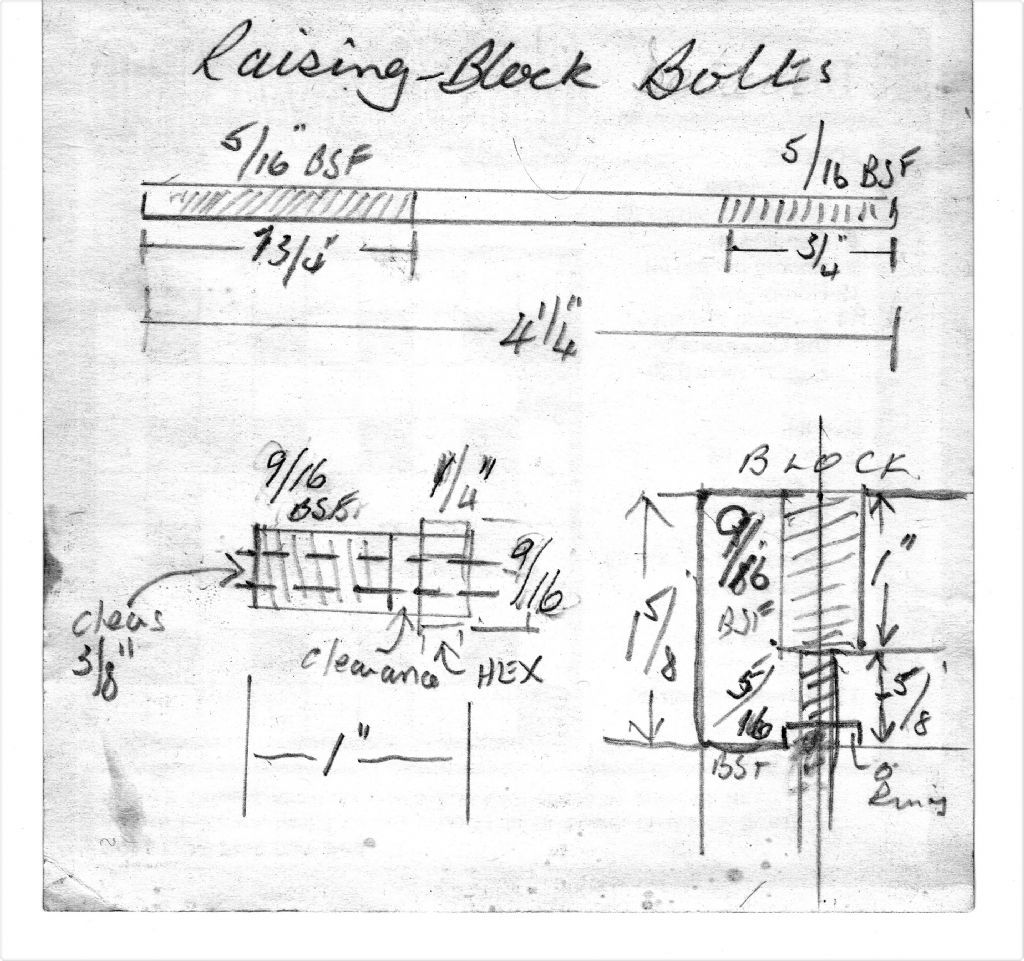 Raising-Block Bolts
5/16" BSF
5/16 BSF
1 3/4"
3/4"
4 1/4"
9/16
BSF
1/4"
9/16
clears
3/8"
clearance
HEX
1"
BLOCK
9/16
BSF
1"
1 5/8
5/16
BSF
5/8
O
Ring